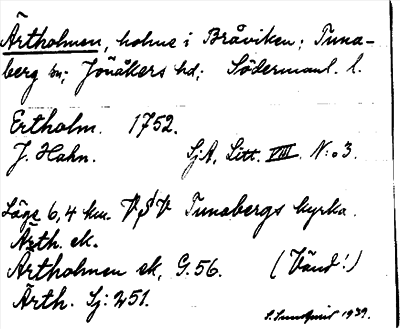 Ärtholmen, holme i Bråviken; Tuna-
berg sn; Jönåkers hd; Södermanl. l.
Ertholm. 1752.
J. Hahn. SjA, Litt. VIII. N:o 3.
Läge 6,4 km VSV Tunabergs kyrka.
Ärth. ek.
Ärtholmen ek, G. 56. (Vänd!)
Ärth. Sj: 251.
S. Sundqvist 1939.